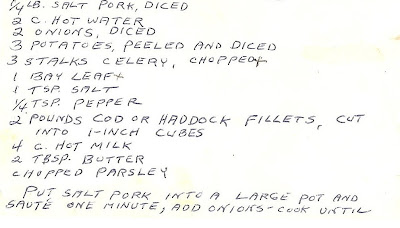 1/4 LB. SALT PORK, DICED
2 C. HOT WATER
2 ONIONS, DICED
3 POTATOES, PEELED AND DICED
3 STALKS CELERY, CHOPPED
1 BAY LEAF
1 TSP. SALT
1/4 TSP. PEPPER
2 POUNDS COD OR HADDOCK FILLETS, CUT
INTO 1-INCH CUBES
4 C. HOT MILK
2 TBSP. BUTTER
CHOPPED PARSLEY
PUT SALT PORK INTO A LARGE POT AND
SAUTÉ ONE MINUTE; ADD ONIONS-COOK UNTIL